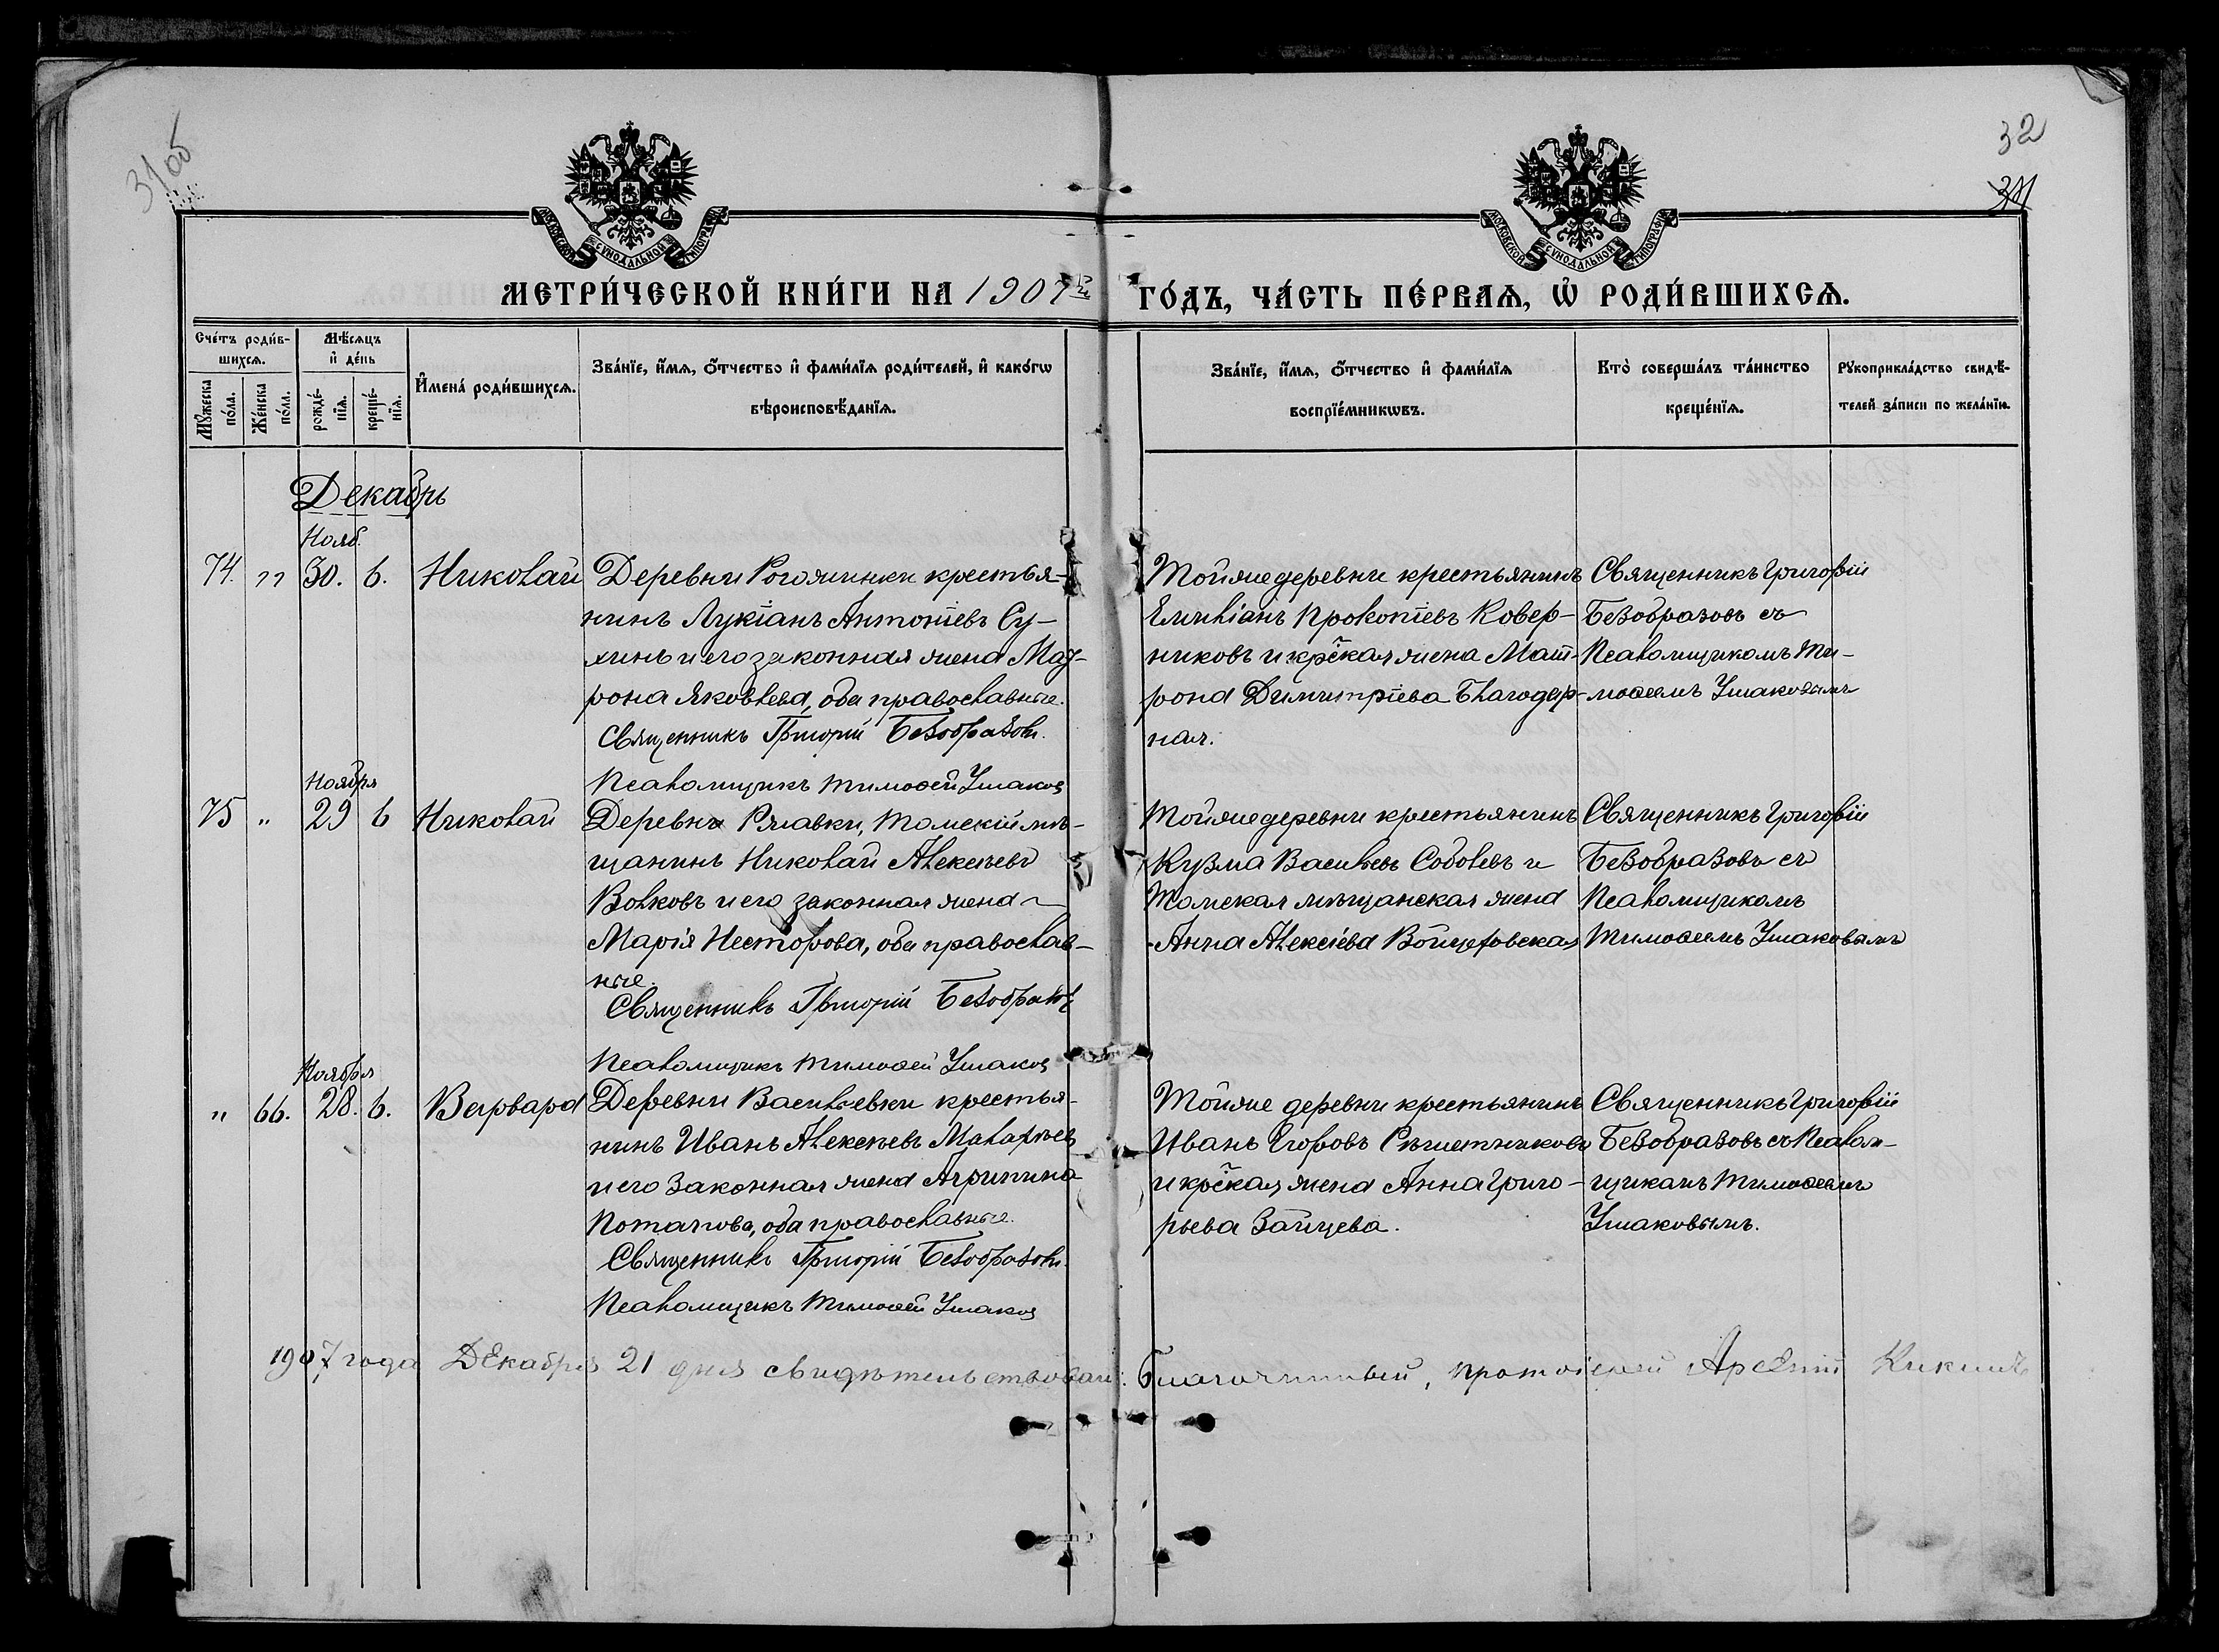 31об
32
МОСКОВСКОЙ СѴНОДАЛЬНОЙ ТИПОГРАФІИ
МОСКОВСКОЙ СѴНОДАЛЬНОЙ ТИПОГРАФІИ
МЕТРИ́ЧЕСКОЙ КНИ́ГИ НА 1907й
ГО́ДЪ, ЧА́СТЬ ПЕ́РВАѦ, Ѿ РОДИ́ВШИХСѦ.
Сче́тъ роди́в-
шихсѧ.
Мꙋ́жеска по́ла.
Же́нска по́ла.
Мѣ́сѧцъ
и҆ де́нь
рожде́-нїѧ.
креще́-нїѧ.
И҆мена̀ роди́вшихсѧ.
Зва́нїе, и҆́мѧ, ѻ҆́тчество и҆ фами́лїѧ роди́телей, и҆ како́гѡ
вѣроисповѣ́данїѧ.
Зва́нїе, и҆́мѧ, ѻ҆́тчество и҆ фами́лїѧ
воспрїе́мникѡвъ.
Кто̀ соверша́лъ та́инство
креще́нїѧ.
Рꙋкоприкла́дство свидѣ́-
телей за́писи по жела́нїю.
Декабрь
Нояб.
74. " 30. 6. Николай
Деревни Рогожинки крестья-
нинъ Лукіанъ Антоніевъ Су-
хинъ и его законная жена Мат-
рона Яковлева, оба православные.
Священникъ Григорій Безобразовъ.
Псаломщикъ Тимоѳей Ушаковъ
Тойже деревни крестьянинъ
Емиліанъ Прокопіевъ Ковер-
никовъ и крс̃кая жена Мат-
рона Димитріева Благодар-
ная.
Священникъ Григорій
Безобразовъ съ
Псаломщикомъ Ти-
моѳеемъ Ушаковымъ
Ноября
75 " 29 6 Николай
Деревни Ржавки, Томскій мѣ-
щанинъ Николай Алексѣевъ
Волковъ и его законная жена
Марія Несторова, оба православ-
ные.
Священникъ Григорій Безобразовъ
Псаломщикъ Тимоѳей Ушаковъ
Тойже деревни крестьянинъ
Кузма Васильевъ Соболевъ и
Томская мѣщанская жена
Анна Алексіева Войцеховская
Священникъ Григорій
Безобразовъ съ
Псаломщикомъ
Тимоѳеемъ Ушаковымъ
Ноября
" 66. 28. 6. Варвара
Деревни Васильевки крестья-
нинъ Иванъ Алексѣевъ Малафѣевъ
и его законная жена Агрипина
Потапова, оба православные.
Священникъ Григорій Безобразовъ.
Псаломщикъ Тимоѳей Ушаковъ
Тойже деревни крестьянинъ
Иванъ Егоровъ Рѣшетниковъ
и крс̃кая жена Анна Григо-
рьева Зайцева.
Священникъ Григорій
Безобразовъ съ Псалом-
щикомъ Тимоѳеемъ
Ушаковымъ.
1907 года Декабря 21 дня свидѣтельствовалъ: Благочинный, протоіерей Арсеній Кикинъ